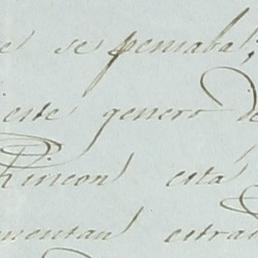 se pensaba,
este genero de
Rincon está
mentan estra